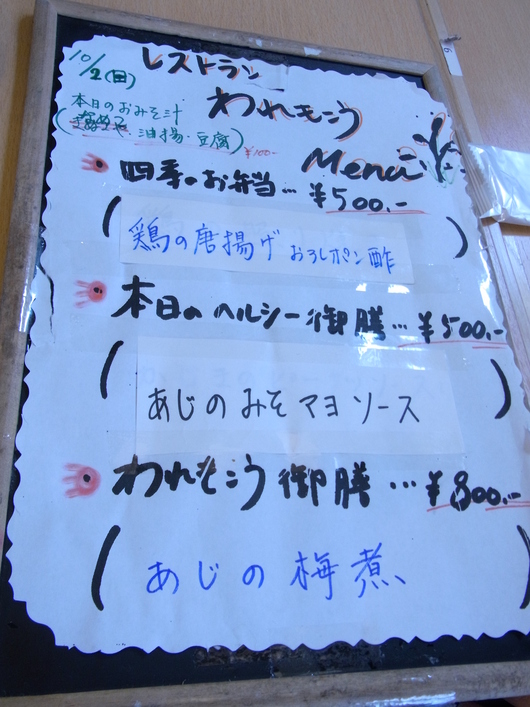 10/2(日)
レストラン
われもこう
Menu
本日のおみそ汁
(なめこ 油揚・豆腐)
¥100-
四季のお弁当…¥500.-
(鶏の唐揚げ おろしポン酢)
本日のヘルシー御膳…¥500.-
(あじのみそマヨソース)
われもこう御膳…¥800.-
(あじの梅煮)